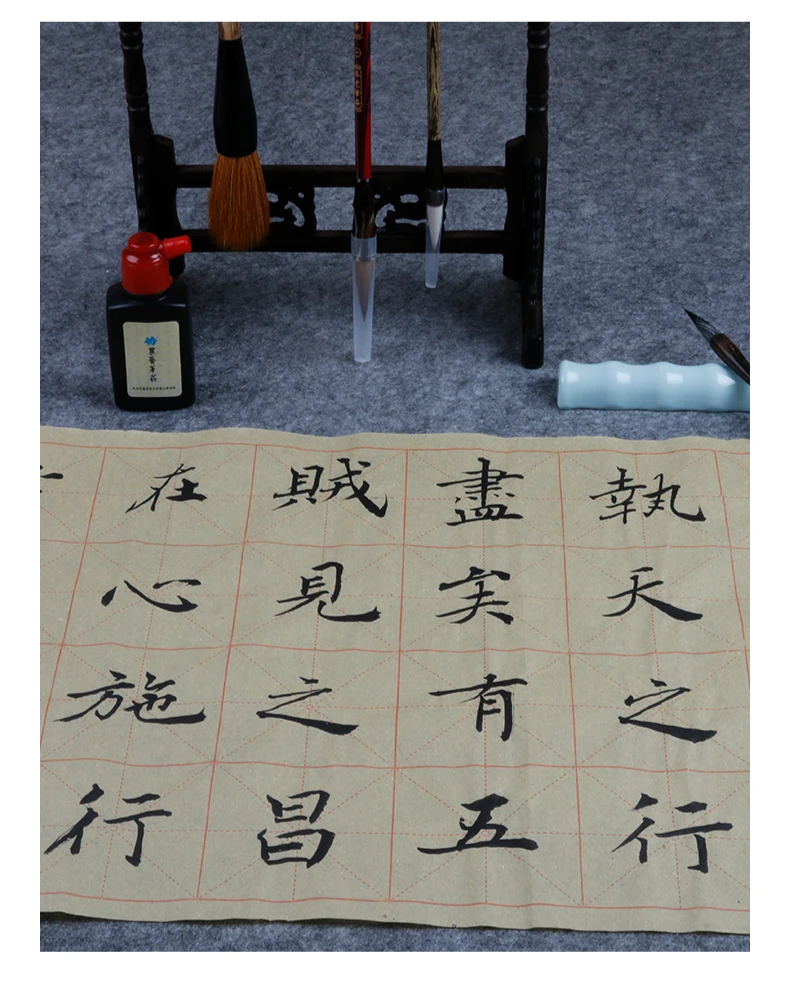 執天之行
盡矣有五
賊見之昌
在心施行